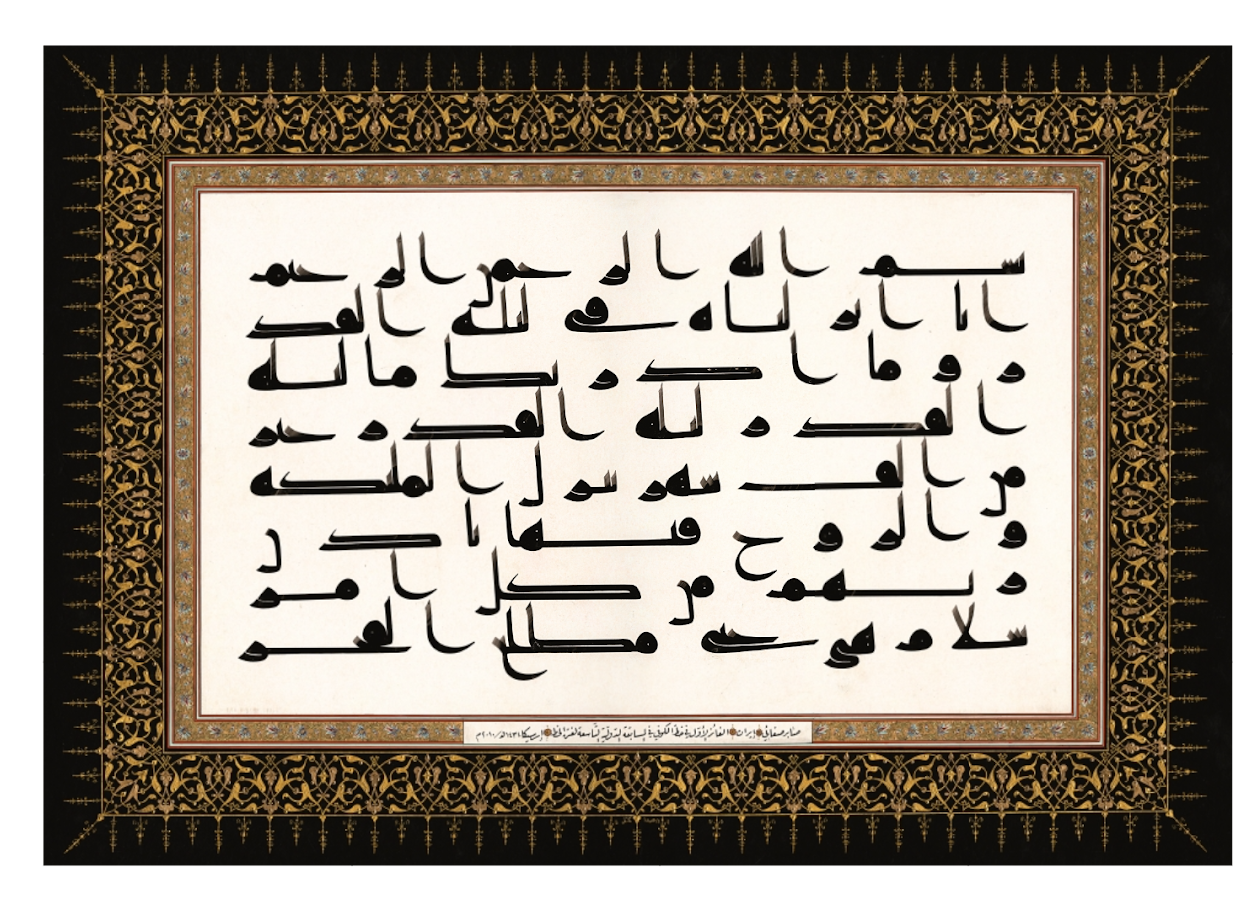 بسم الله الرحمن الرحيم
انا انزلنه في ليلة القد
ر وما ادريك ما ليلة
القدر ليلة القدر خير
من الف شهر تنزل الملئكة
والروح فيها باذن
ربهم من كل امر
سلام هي حتى مطلع الفجر
صابر صفائي • إيران • الفائز الأول في خط الكوفي في المسابقة الدولية التاسعة لفن الخط • إرسيكا ١٤٣١هـ/٢٠١٠م